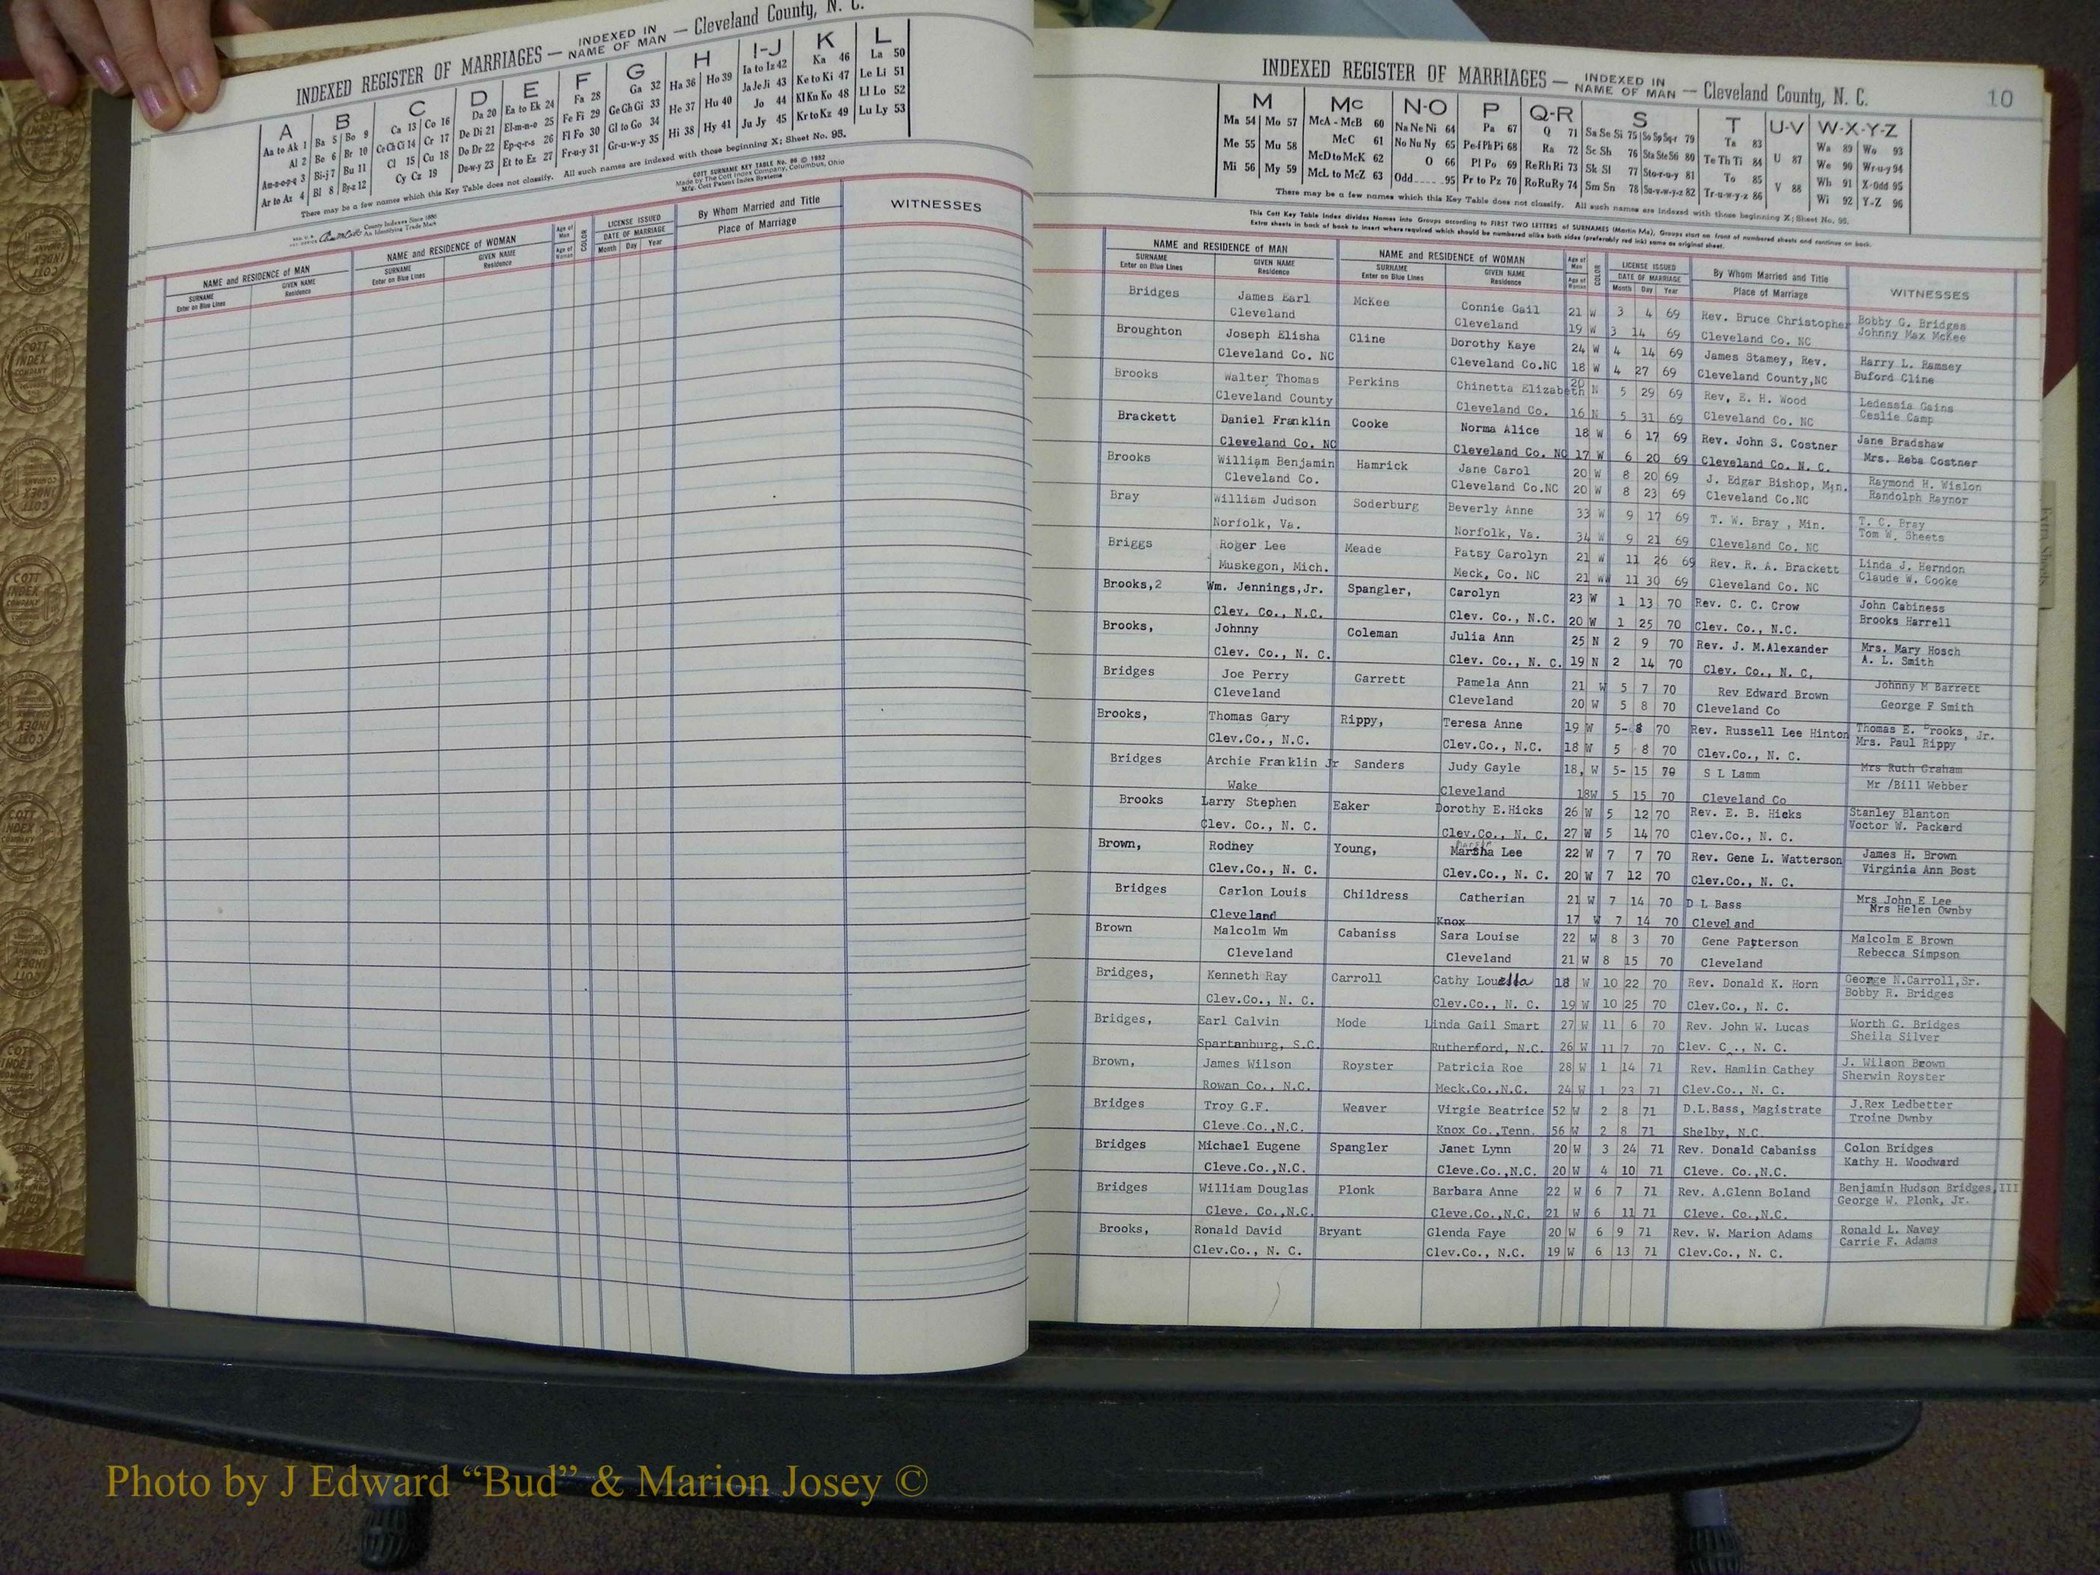 INDEXED REGISTER OF MARRIAGES — INDEXED IN NAME OF MAN — Cleveland County, N. C.
A B C D E F G H I-J K L
Aa to Ak 1 Ba 5 Bo 9 Ca 13 Co 16 Da 20 Ea to Ek 24 Fa 28 Ga 32 Ha 36 Ho 39 Ia to Iz 42 Ka 46 La 50
Al 2 Be 6 Br 10 Ce Ch Ci 14 Cr 17 De Di 21 El-m-n-o 25 Fe Fi 29 Ge Gh Gi 33 He 37 Hu 40 Ja Je Ji 43 Ke to Ki 47 Le Li 51
Am-n-o-p-q 3 Bi-j 7 Bu 11 Cl 15 Cu 18 Do Dr 22 Ep-q-r-s 26 Fl Fo 30 Gl to Go 34 Hi 38 Hy 41 Jo 44 Kl Kn Ko 48 Ll Lo 52
Ar to Az 4 Bl 8 By-z 12 Cy Cz 19 Du-w-y 23 Et to Ez 27 Fr-u-y 31 Gr-u-w-y 35 Ju Jy 45 Kr to Kz 49 Lu Ly 53
There may be a few names which this Key Table does not classify. All such names are indexed with those beginning X; Sheet No. 95.
COTT SURNAME KEY TABLE No. 96 © 1952
Made by The Cott Index Company, Columbus, Ohio
Mfg. Cott Patent Index Systems
County Indexes Since 1888
An Identifying Trade Mark
NAME and RESIDENCE of MAN
SURNAME Enter on Blue Lines
GIVEN NAME Residence
NAME and RESIDENCE of WOMAN
SURNAME Enter on Blue Lines
GIVEN NAME Residence
Age of Man
Age of Woman
COLOR
LICENSE ISSUED
DATE OF MARRIAGE
Month Day Year
By Whom Married and Title
Place of Marriage
WITNESSES
INDEXED REGISTER OF MARRIAGES — INDEXED IN NAME OF MAN — Cleveland County, N. C.
10
M Mc N-O P Q-R S T U-V W-X-Y-Z
Ma 54 Mo 57 McA - McB 60 Na Ne Ni 64 Pa 67 Q 71 Sa Se Si 75 So Sp Sq-r 79 Ta 83 Wa 89 Wo 93
Me 55 Mu 58 McC 61 No Nu Ny 65 Pe-f Ph Pi 68 Ra 72 Sc Sh 76 Sta Ste Sti 80 Te Th Ti 84 U 87 We 90 Wr-u-y 94
Mi 56 My 59 McD to McK 62 O 66 Pl Po 69 Re Rh Ri 73 Sk Sl 77 Sto-r-u-y 81 To 85 Wh 91 X-Odd 95
McL to McZ 63 Odd 95 Pr to Pz 70 Ro Ru Ry 74 Sm Sn 78 Su-v-w-y-z 82 Tr-u-w-y-z 86 V 88 Wi 92 Y-Z 96
There may be a few names which this Key Table does not classify. All such names are indexed with those beginning X; Sheet No. 95.
This Cott Key Table Index divides Names into Groups according to FIRST TWO LETTERS of SURNAMES (Martin Ma), Groups start on front of numbered sheets and continue on back.
Extra sheets in back of book to insert where required which should be numbered alike both sides (preferably red ink) same as original sheet.
NAME and RESIDENCE of MAN
SURNAME Enter on Blue Lines
GIVEN NAME Residence
NAME and RESIDENCE of WOMAN
SURNAME Enter on Blue Lines
GIVEN NAME Residence
Age of Man
Age of Woman
COLOR
LICENSE ISSUED
DATE OF MARRIAGE
Month Day Year
By Whom Married and Title
Place of Marriage
WITNESSES
Bridges James Earl McKee Connie Gail 21 W 3 4 69 Rev. Bruce Christopher Bobby G. Bridges
Cleveland Cleveland 19 W 3 14 69 Cleveland Co. NC Johnny Max McKee
Broughton Joseph Elisha Cline Dorothy Kaye 24 W 4 14 69 James Stamey, Rev. Harry L. Ramsey
Cleveland Co. NC Cleveland Co.NC 18 W 4 27 69 Cleveland County,NC Buford Cline
Brooks Walter Thomas Perkins Chinetta Elizabeth 20 N 5 29 69 Rev, E. H. Wood Ledessia Gains
Cleveland County Cleveland Co. 16 N 5 31 69 Cleveland Co. NC Ceslie Camp
Brackett Daniel Franklin Cooke Norma Alice 18 W 6 17 69 Rev. John S. Costner Jane Bradshaw
Cleveland Co. NC Cleveland Co. NC 17 W 6 20 69 Cleveland Co. N. C. Mrs. Reba Costner
Brooks William Benjamin Hamrick Jane Carol 20 W 8 20 69 J. Edgar Bishop, Min. Raymond H. Wislon
Cleveland Co. Cleveland Co.NC 20 W 8 23 69 Cleveland Co.NC Randolph Raynor
Bray William Judson Soderburg Beverly Anne 33 W 9 17 69 T. W. Bray , Min. T. C. Bray
Norfolk, Va. Norfolk, Va. 34 W 9 21 69 Cleveland Co. NC Tom W. Sheets
Briggs Roger Lee Meade Patsy Carolyn 21 W 11 26 69 Rev. R. A. Brackett Linda J. Herndon
Muskegon, Mich. Meck, Co. NC 21 W 11 30 69 Cleveland Co. NC Claude W. Cooke
Brooks,2 Wm. Jennings,Jr. Spangler, Carolyn 23 W 1 13 70 Rev. C. C. Crow John Cabiness
Clev. Co., N.C. Clev. Co., N.C. 20 W 1 25 70 Clev. Co., N.C. Brooks Harrell
Brooks, Johnny Coleman Julia Ann 25 N 2 9 70 Rev. J. M.Alexander Mrs. Mary Hosch
Clev. Co., N. C. Clev. Co., N. C. 19 N 2 14 70 Clev. Co., N. C. A. L. Smith
Bridges Joe Perry Garrett Pamela Ann 21 W 5 7 70 Rev Edward Brown Johnny M Barrett
Cleveland Cleveland 20 W 5 8 70 Cleveland Co George F Smith
Brooks, Thomas Gary Rippy, Teresa Anne 19 W 5- 8 70 Rev. Russell Lee Hinton Thomas E. Brooks, Jr.
Clev.Co., N.C. Clev.Co., N.C. 18 W 5 8 70 Clev.Co., N. C. Mrs. Paul Rippy
Bridges Archie Franklin Jr Sanders Judy Gayle 18, W 5- 15 70 S L Lamm Mrs Ruth Graham
Wake Cleveland 18W 5 15 70 Cleveland Co Mr /Bill Webber
Brooks Larry Stephen Eaker Dorothy E.Hicks 26 W 5 12 70 Rev. E. B. Hicks Stanley Blanton
Clev. Co., N. C. Clev.Co., N. C. 27 W 5 14 70 Clev.Co., N. C. Voctor W. Packard
Brown, Rodney Young, Marsha Lee 22 W 7 7 70 Rev. Gene L. Watterson James H. Brown
Clev.Co., N. C. Clev.Co., N. C. 20 W 7 12 70 Clev.Co., N. C. Virginia Ann Bost
Bridges Carlon Louis Childress Catherian 21 W 7 14 70 D L Bass Mrs John E Lee
Cleveland Knox 17 W 7 14 70 Cleveland Mrs Helen Ownby
Brown Malcolm Wm Cabaniss Sara Louise 22 W 8 3 70 Gene Patterson Malcolm E Brown
Cleveland Cleveland 21 W 8 15 70 Cleveland Rebecca Simpson
Bridges, Kenneth Ray Carroll Cathy Louella 18 W 10 22 70 Rev. Donald K. Horn George N.Carroll,Sr.
Clev.Co., N. C. Clev.Co., N. C. 19 W 10 25 70 Clev.Co., N. C. Bobby R. Bridges
Bridges, Earl Calvin Mode Linda Gail Smart 27 W 11 6 70 Rev. John W. Lucas Worth G. Bridges
Spartanburg, S.C. Rutherford, N.C. 26 W 11 7 70 Clev. C_., N. C. Sheila Silver
Brown, James Wilson Royster Patricia Roe 28 W 1 14 71 Rev. Hamlin Cathey J. Wilson Brown
Rowan Co., N.C. Meck.Co.,N.C. 24 W 1 23 71 Clev.Co., N. C. Sherwin Royster
Bridges Troy G.F. Weaver Virgie Beatrice 52 W 2 8 71 D.L.Bass, Magistrate J.Rex Ledbetter
Cleve.Co.,N.C. Knox Co.,Tenn. 56 W 2 8 71 Shelby, N.C. Troine Dwnby
Bridges Michael Eugene Spangler Janet Lynn 20 W 3 24 71 Rev. Donald Cabaniss Colon Bridges
Cleve.Co.,N.C. Cleve.Co.,N.C. 20 W 4 10 71 Cleve. Co.,N.C. Kathy H. Woodward
Bridges William Douglas Plonk Barbara Anne 22 W 6 7 71 Rev. A.Glenn Boland Benjamin Hudson Bridges,III
Cleve. Co.,N.C. Cleve.Co.,N.C. 21 W 6 11 71 Cleve. Co.,N.C. George W. Plonk, Jr.
Brooks, Ronald David Bryant Glenda Faye 20 W 6 9 71 Rev. W. Marion Adams Ronald L. Navey
Clev.Co., N. C. Clev.Co., N.C. 19 W 6 13 71 Clev.Co., N. C. Carrie F. Adams
Photo by J Edward “Bud” & Marion Josey ©